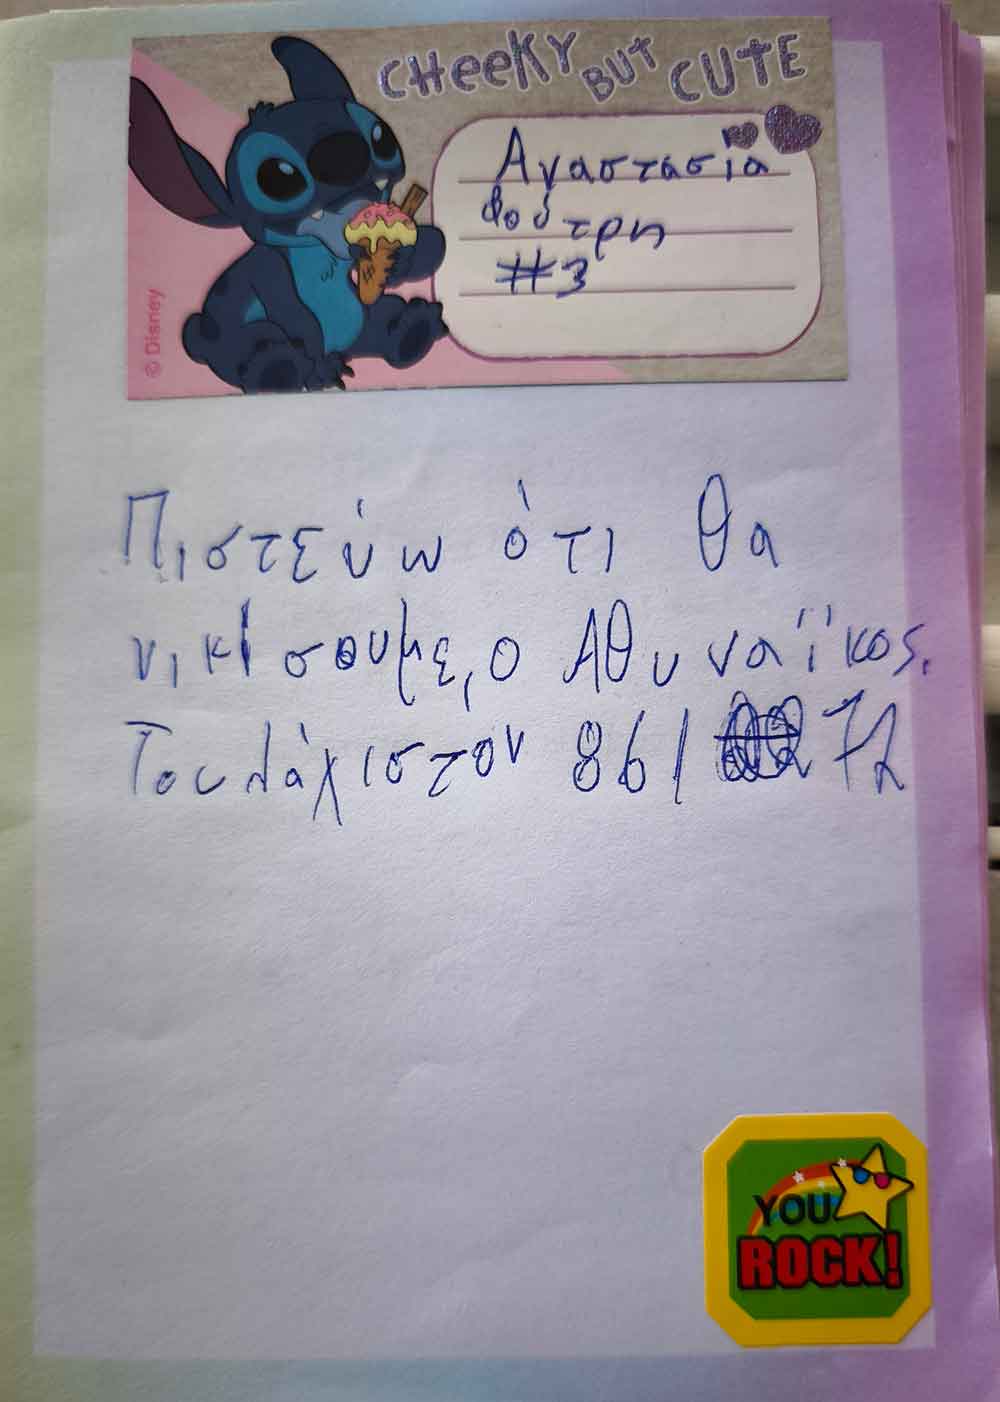 CHEEKY BUT CUTE
Αναστασία
Φούτρη
#3
© Disney
Πιστεύω ότι θα
νικίσουμε, ο Αθυναϊκος.
Τουλάχιστον 86/ 72
YOU
ROCK!